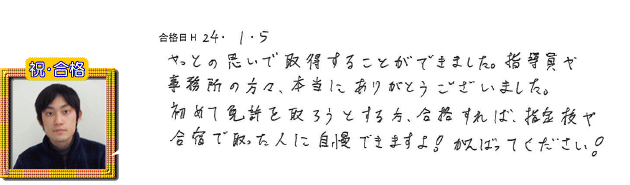 合格日 H 24・1・5
祝・合格
やっとの思いで取得することができました。指導員や
事務所の方々、本当にありがとうございました。
初めて免許を取ろうとする方、合格すれば、指定校や
合宿で取った人に自慢できますよ!がんばってください!